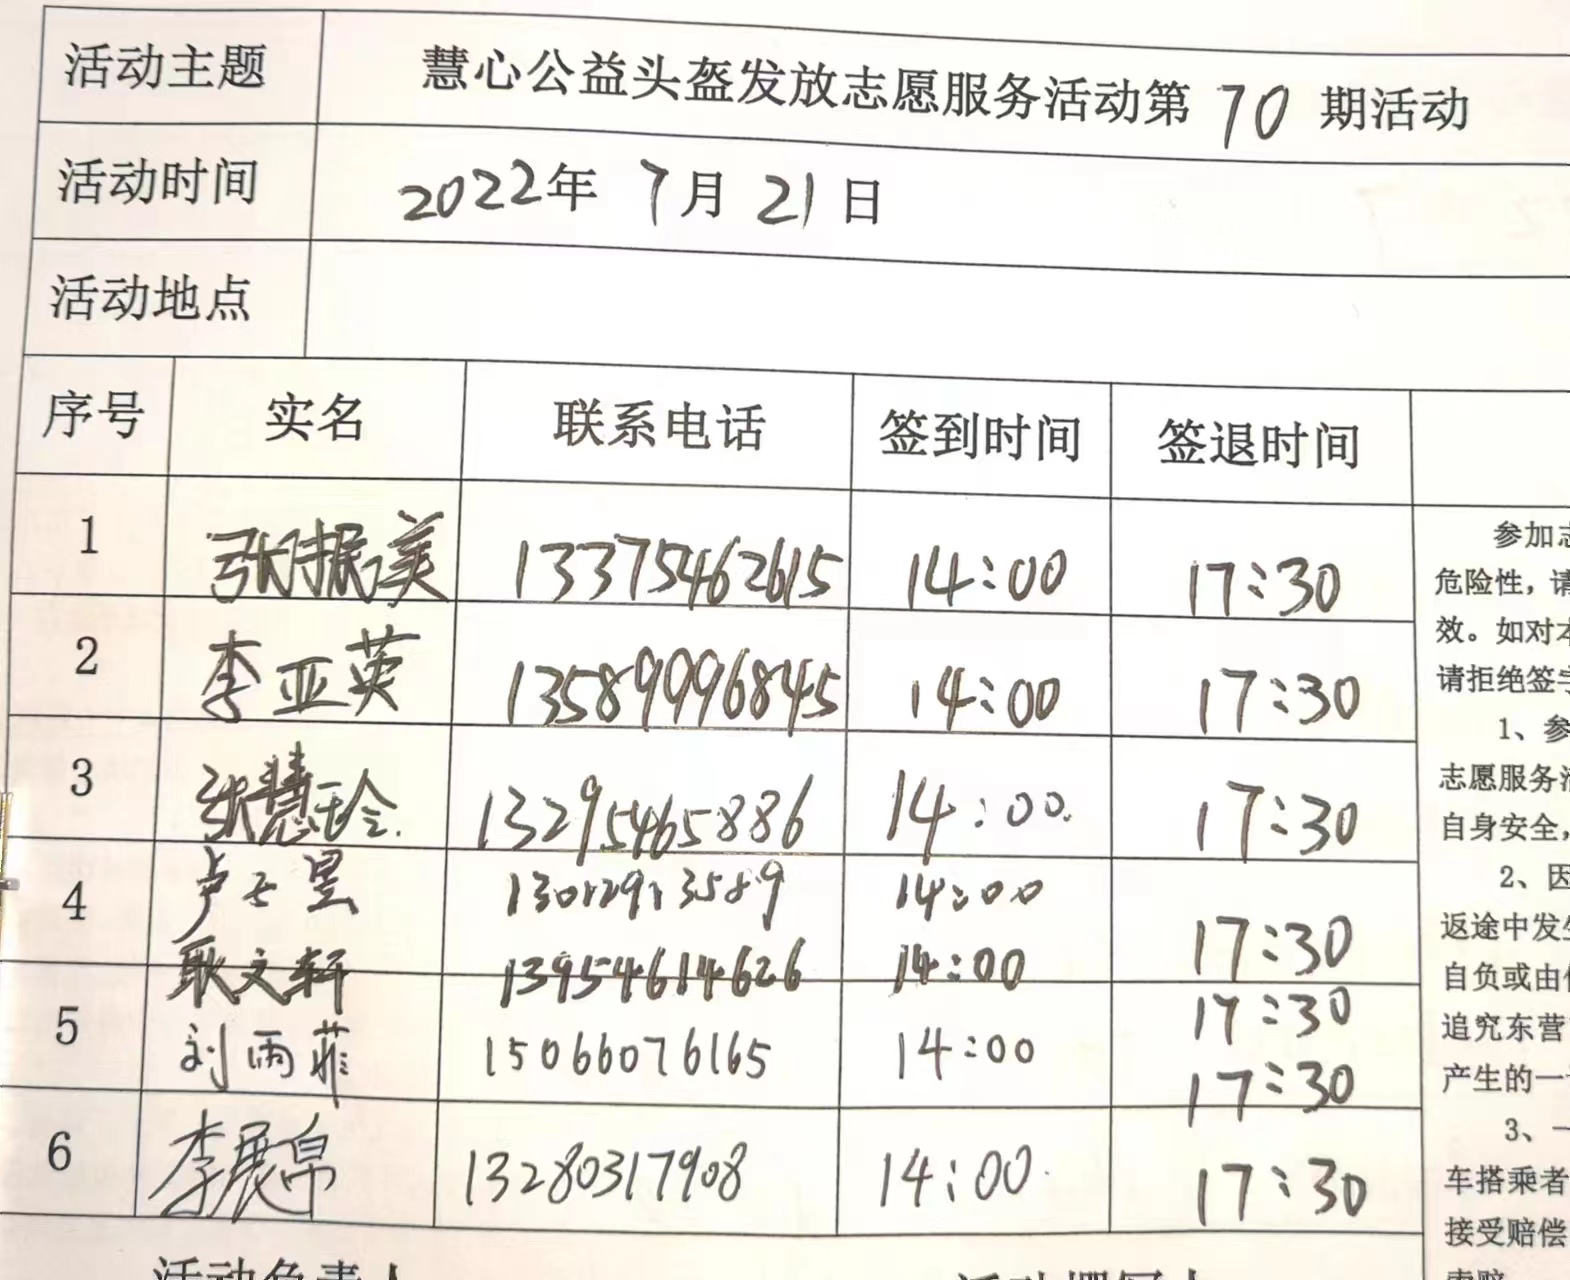 活动主题 慧心公益头盔发放志愿服务活动第 70 期活动
活动时间 2022年 7月 21日
活动地点
序号 实名 联系电话 签到时间 签退时间
1 张振美 13375462615 14:00 17:30
2 李亚英 13589996845 14:00 17:30
3 张慧玲 13295465886 14:00 17:30
4 卢 昱 14:00 17:30
耿文轩 13954614626 14:00 17:30
5 刘雨菲 15066076165 14:00 17:30
6 李展帛 13280317908 14:00 17:30
参加志
危险性，请
效。如对本
请拒绝签字
1、参
志愿服务活
自身安全，
2、因
返途中发生
自负或由
追究东营
产生的一
3、一
车搭乘者
接受赔偿
索赔
活动负责人